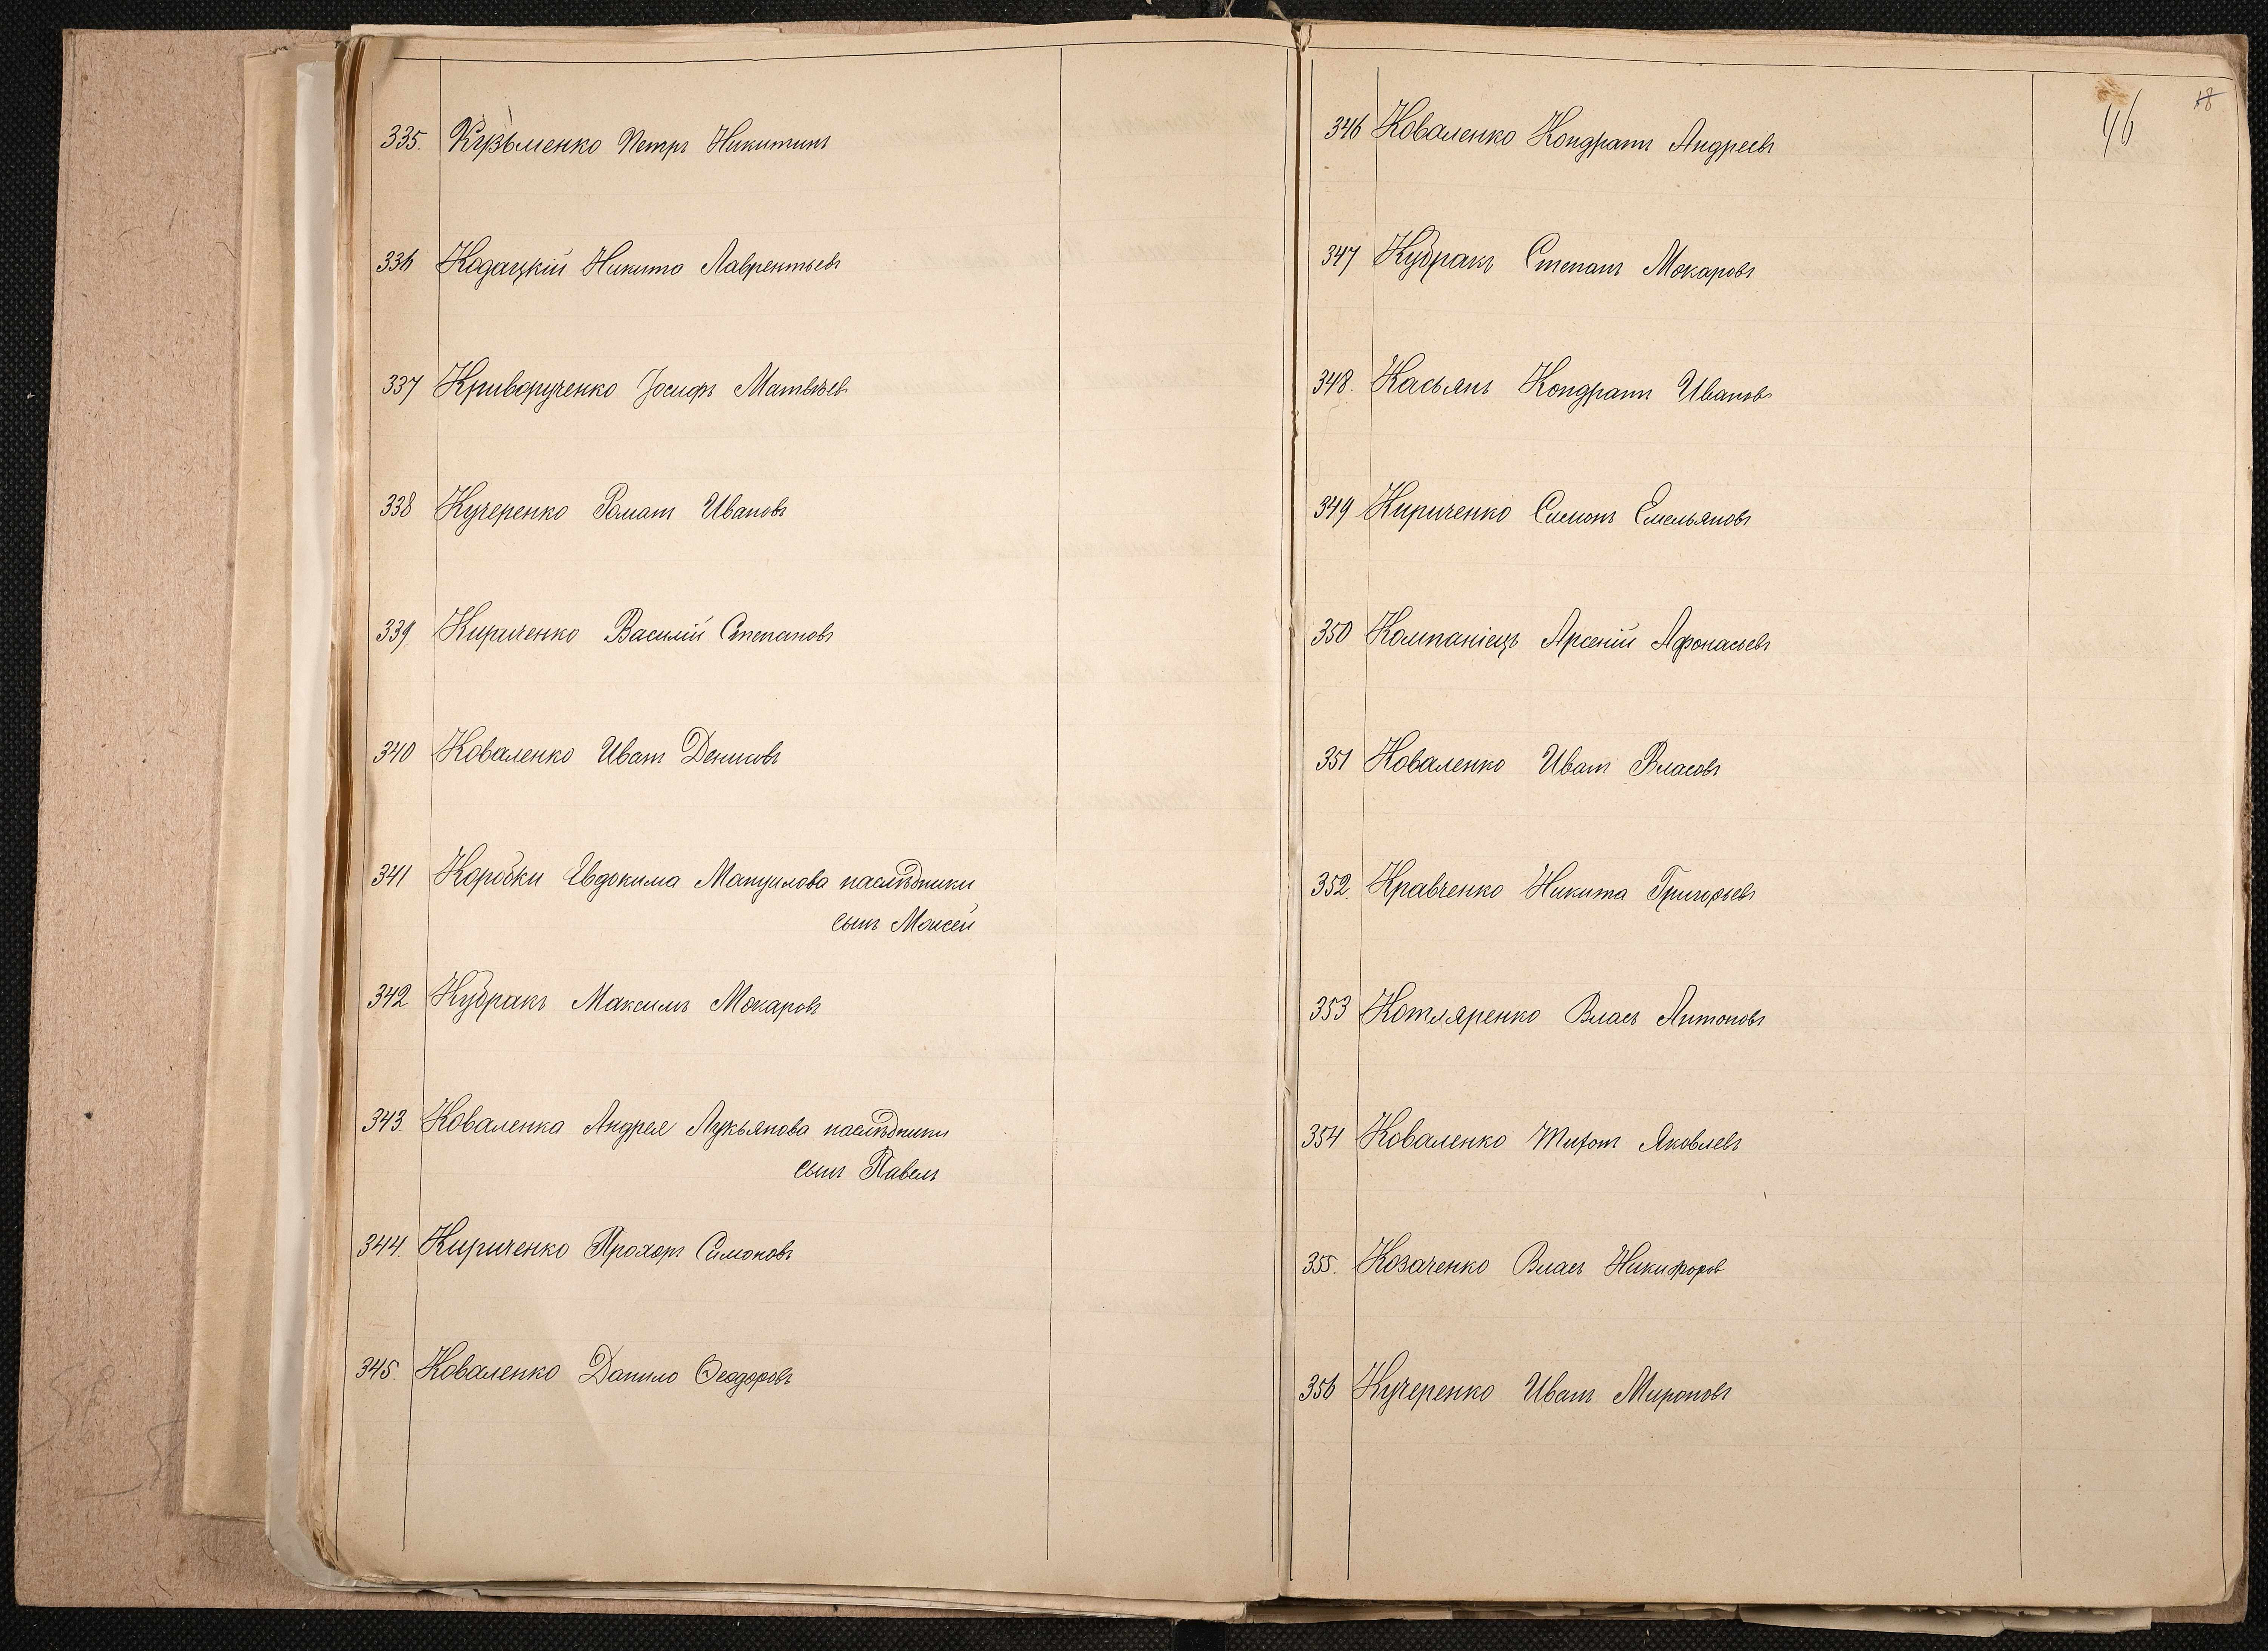 335. Кузьменко Петръ Никитинъ
336 Кодацкій Никита Лаврентьевъ
337 Криворученко Іосифъ Матвѣевъ
338 Кучеренко Романъ Ивановъ
339 Кириченко Василій Степановъ
340 Коваленко Иванъ Денисовъ
341 Коробки Евдокима Мануилова наслѣдники
сынъ Моисей
342 Кубракъ Максимъ Макаровъ
343. Коваленка Андрея Лукьянова наслѣдники
сынъ Павелъ
344. Кириченко Прохоръ Симоновъ
345. Коваленко Данило Ѳеодоровъ
46
18
346 Коваленко Кондратъ Андреевъ
347 Кубракъ Степанъ Макаровъ
348. Касьянъ Кондратъ Ивановъ
349 Кириченко Симонъ Емельяновъ
350 Компаніецъ Арсеній Афонасьевъ
351 Коваленко Иванъ Власовъ
352. Кравченко Никита Григорьевъ
353 Котляренко Власъ Антоновъ
354 Коваленко Тихонъ Яковлевъ
355. Козаченко Власъ Никифоровъ
356 Кучеренко Иванъ Мироновъ